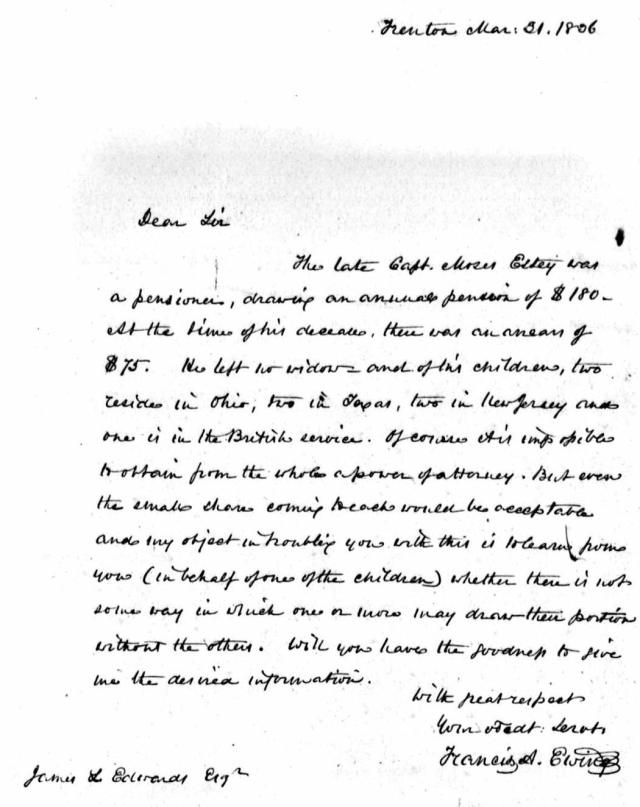 Trenton Mar: 31. 1806
Dear Sir
The late Capt. Moses Elsey was
a pensioner, drawing an annual pension of $180-
At the time of his decease, there was an arrears of
$75. He left no widow - and of his children, two
reside in Ohio, two in Texas, two in New Jersey and
one is in the British service. Of course it is impossible
to obtain from the whole a power of attorney. But even
the small share coming to each would be acceptable
and my object in troubling you with this is to learn from
you (in behalf of one of the children) whether there is not
some way in which one or more may draw their portion
without the others. Will you have the goodness to give
me the desired information.
With great respect
Your obedt: Servt
Francis A. Ewing
James L Edwards Esqr